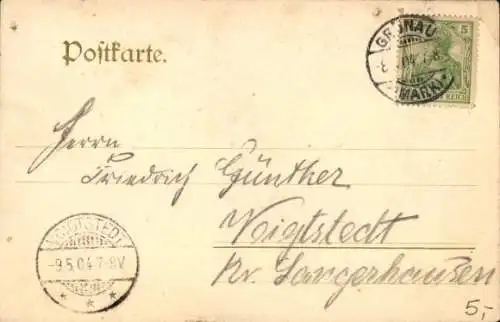 Postkarte.
GRÜNAU
5
04 7-8
(MARK)
REICH
Herrn
Friedrich Günther
Voigtstedt
Kr. Sangerhausen
VOIGTSTEDT
-9.5.04.7-8V
5,-